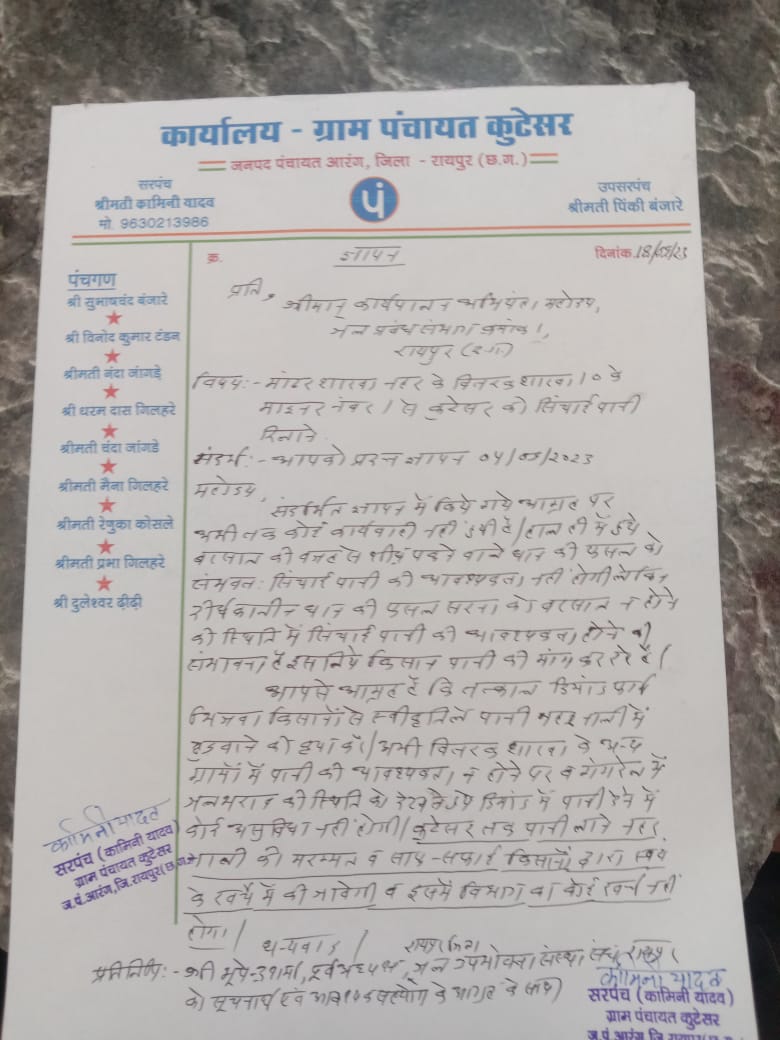 कार्यालय - ग्राम पंचायत कुटेसर
जनपद पंचायत आरंग, जिला - रायपुर (छ.ग.)
सरपंच
श्रीमती कामिनी यादव
मो. 9630213986
पं
उपसरपंच
श्रीमती पिंकी बंजारे
पंचगण
श्री सुभाषचंद बंजारे
श्री विनोद कुमार टंडन
श्रीमती नंदा जांगड़े
श्री धरम दास गिलहरे
श्रीमती चंदा जांगडे
श्रीमती मैना गिलहरे
श्रीमती रेणुका कोसले
श्रीमती प्रभा गिलहरे
श्री दुलेश्वर ढ़ीढ़ी
क्र. ज्ञापन दिनांक.18/08/23
प्रति,
श्रीमान् कार्यपालन अभियंता महोदय,
जल प्रबंध संभाग क्रमांक 1,
रायपुर (छ.ग.)
विषय:- मांढर शाखा नहर के वितरक शाखा 10 के
माइनर नंबर 1 से कुटेसर को सिंचाई पानी
दिलाने
संदर्भ:- आपको प्रदत्त ज्ञापन 04/08/2023
महोदय,
संदर्भित ज्ञापन में किये गये आग्रह पर
अभी तक कोई कार्यवाही नहीं हुयी है / हाल ही में हुये
बरसात की वजह से शीघ्र पकने वाले धान की फसल को
संभवत: सिंचाई पानी की आवश्यकता नहीं होगी लेकिन
दीर्घकालीन धान की फसल सरना को बरसात न होने
की स्थिति में सिंचाई पानी की आवश्यकता होने की
संभावना है इसलिये किसान पानी की मांग कर रहे हैं /
आपसे आग्रह है कि तत्काल डिमांड फार्म
भिजवा किसानों से स्वीकृति ले पानी नहर नाली में
छुड़वाने की कृपा करें / अभी वितरक शाखा के अन्य
ग्रामों में पानी की आवश्यकता न होने पर व गंगरेल में
जलभराव की स्थिति को देखते हुये डिमांड में पानी देने में
कोई असुविधा नहीं होगी / कुटेसर तक पानी लाने नहर
नाली की मरम्मत व साफ-सफाई किसानों द्वारा स्वयं
के खर्चे में की जावेगी व इसमें विभाग का कोई खर्च नहीं
होगा /
धन्यवाद /
कामिनी यादव
सरपंच (कामिनी यादव)
ग्राम पंचायत कुटेसर
ज.पं.आरंग,जि.रायपुर(छ.ग.)
प्रतिलिपि:- श्री भूपेन्द्र शर्मा, पूर्व अध्यक्ष, रायपुर जिला जल उपभोक्ता संस्था संघ, रायपुर
को सूचनार्थ एवं आवश्यक सहयोग के आग्रह के साथ
कामिनी यादव
सरपंच (कामिनी यादव)
ग्राम पंचायत कुटेसर
ज.पं.आरंग,जि.रायपुर